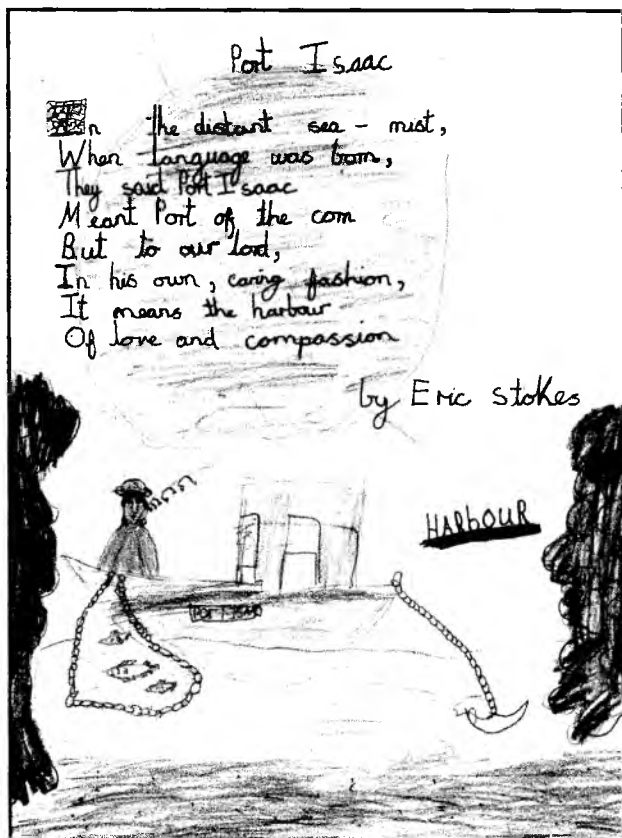 Port Isaac
In the distant sea - mist,
When language was born,
They said Port Isaac
Meant Port of the corn
But to our lord,
In his own, caring fashion,
It means the harbour
Of love and compassion
by Eric Stokes
HARbOUR